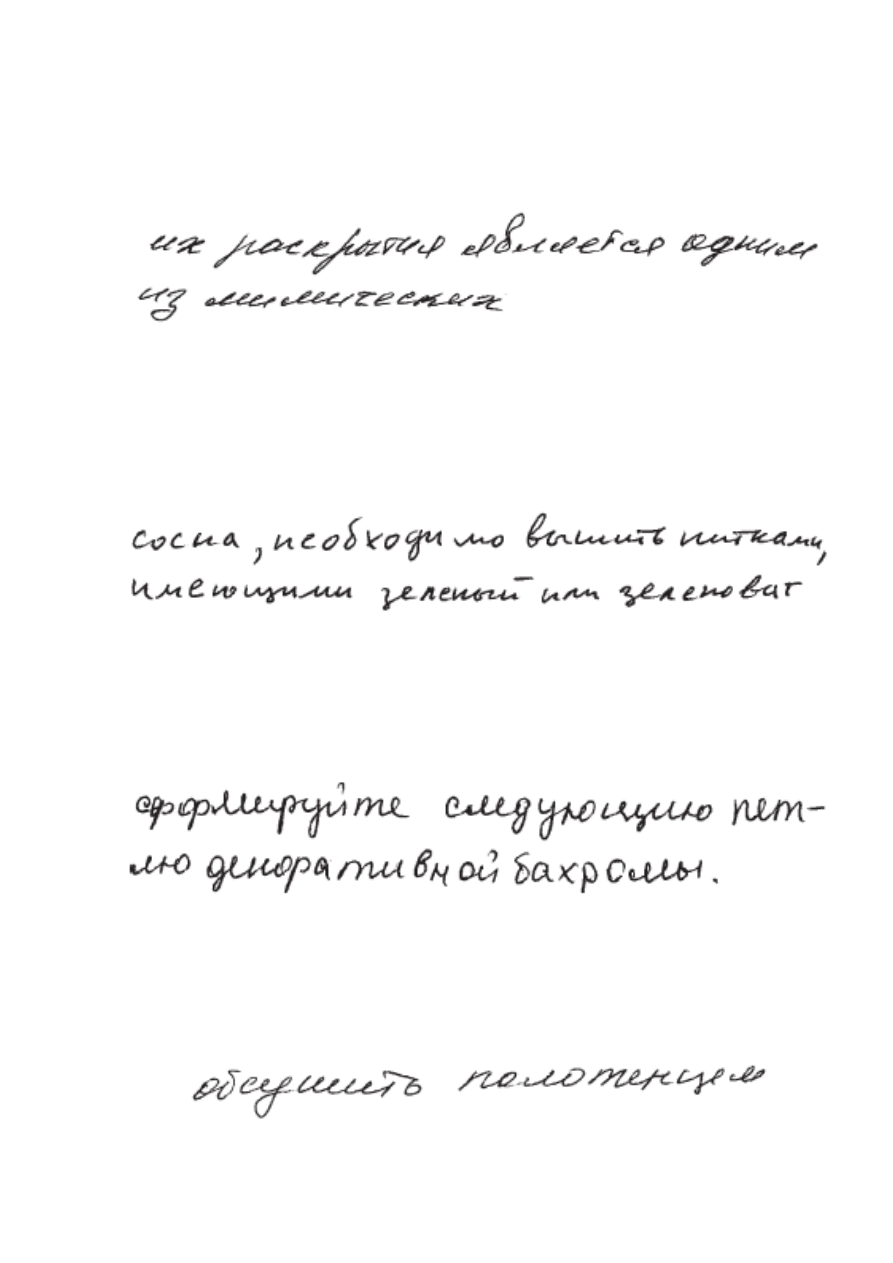 их раскрытия является одним
из мимических
сосна, необходимо вышить нитками,
имеющими зеленый или зеленоват
сформируйте следующую пет-
лю декоративной бахромы.
обсушить полотенцем